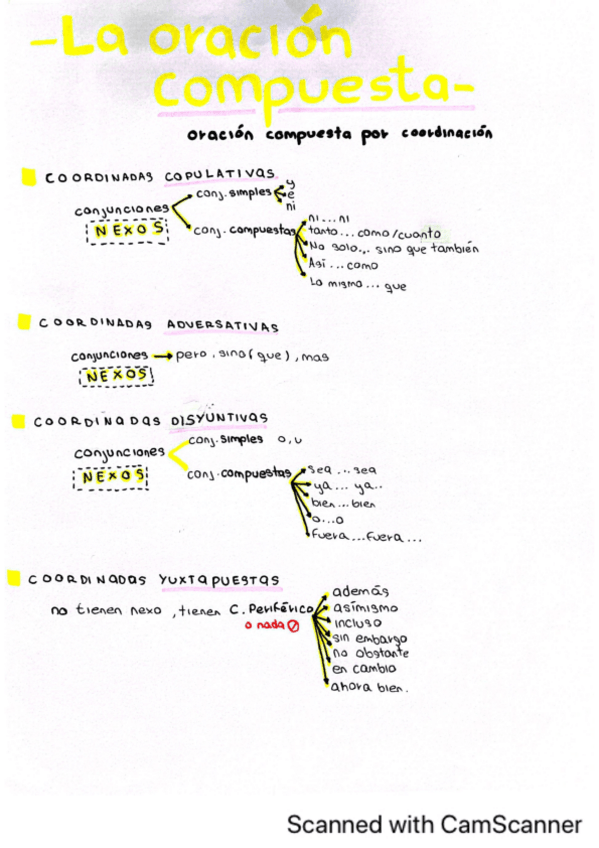 -La oración
compuesta-
oración compuesta por coordinación
COORDINADAS COPULATIVAS
conjunciones
NEXOS
conj. simples
y
e
ni
conj. compuestas
ni...ni
tanto...como/cuanto
No solo... sino que también
Así...como
Lo mismo... que
COORDINADAS ADVERSATIVAS
conjunciones → pero, sino(que), mas
NEXOS
COORDINADAS DISYUNTIVAS
conjunciones
NEXOS
conj. simples o, u
conj. compuestas
sea...sea
ya... ya..
bien...bien
o...o
fuera...fuera...
COORDINADAS YUXTAPUESTAS
no tienen nexo, tienen C. Periférico
o nada Ø
además
asímismo
incluso
sin embargo
no obstante
en cambio
ahora bien.
Scanned with CamScanner